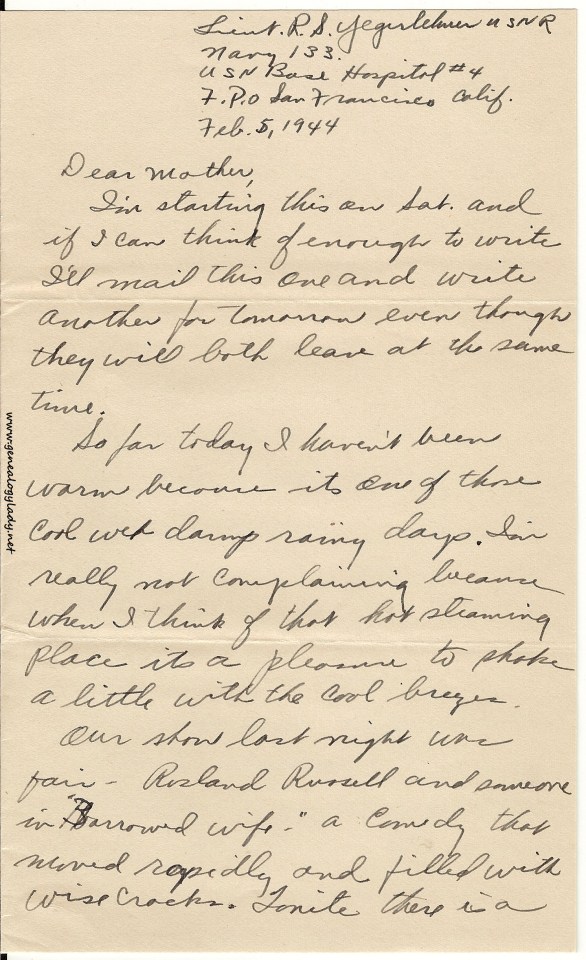 Lieut. R. S. Yegerlehner USNR
Navy 133.
USN Base Hospital #4
F.P.O San Francisco Calif.
Feb. 5, 1944
Dear Mother,
I'm starting this on Sat. and
if I can think of enough to write
I'll mail this one and write
another for tomorrow even though
they will both leave at the same
time.
So far today I haven't been
warm because its one of those
cool wet damp rainy days. I'm
really not complaining because
when I think of that hot steaming
place its a pleasure to shake
a little with the cool breezes.
Our show last night was
fair - Rosland Russell and someone
in "Borrowed wife." a comedy that
moved rapidly and filled with
wise cracks. Tonite there is a
www.genealogylady.net